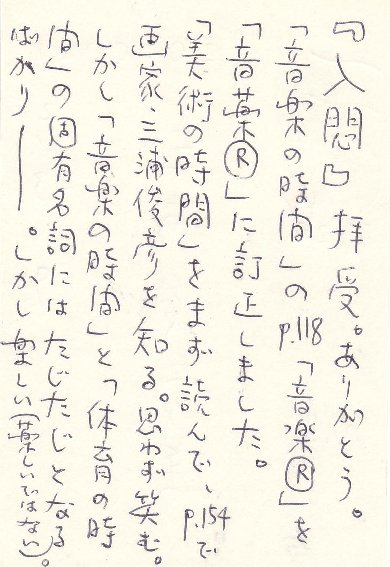 『入悶』拝受。ありがとう。
「音楽の時間」のp.118「音楽Ⓡ」を
「音薬Ⓡ」に訂正しました。
「美術の時間」をまず読んで、p.154で
画家・三浦俊彦を知る。思わず笑む。
しかし「音楽の時間」と「体育の時
間」の固有名詞にはたじたじとなる
ばかり――。しかし楽しい(薬しいではない)。